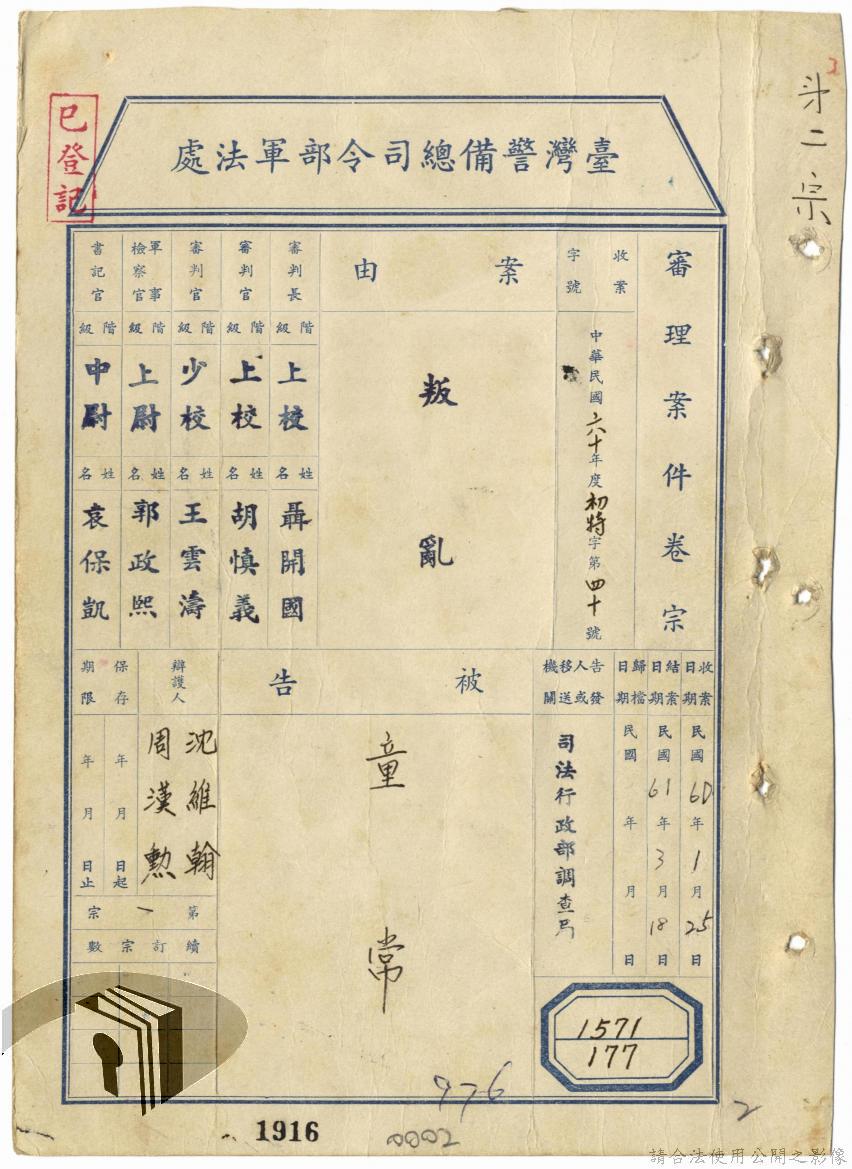 第二宗
已登記
臺灣警備總司令部軍法處
審理案件卷宗
收案字號
中華民國六十年度初特字第四十號
案由
叛亂
審判長
階級
上校
姓名
聶開國
審判官
階級
上校
姓名
胡慎義
審判官
階級
少校
姓名
王雲濤
軍事檢察官
階級
上尉
姓名
郭政熙
書記官
階級
中尉
姓名
袁保凱
收案日期
民國60年1月25日
結案日期
民國61年3月18日
歸檔日期
民國 年 月 日
告發人或移送機關
司法行政部調查局
被告
童常
辯護人
沈維翰
周漢勳
保存期限
年 月 日起
年 月 日止
第一宗
續訂宗數
1571
177
976
1916
0002
2
請合法使用公開之影像